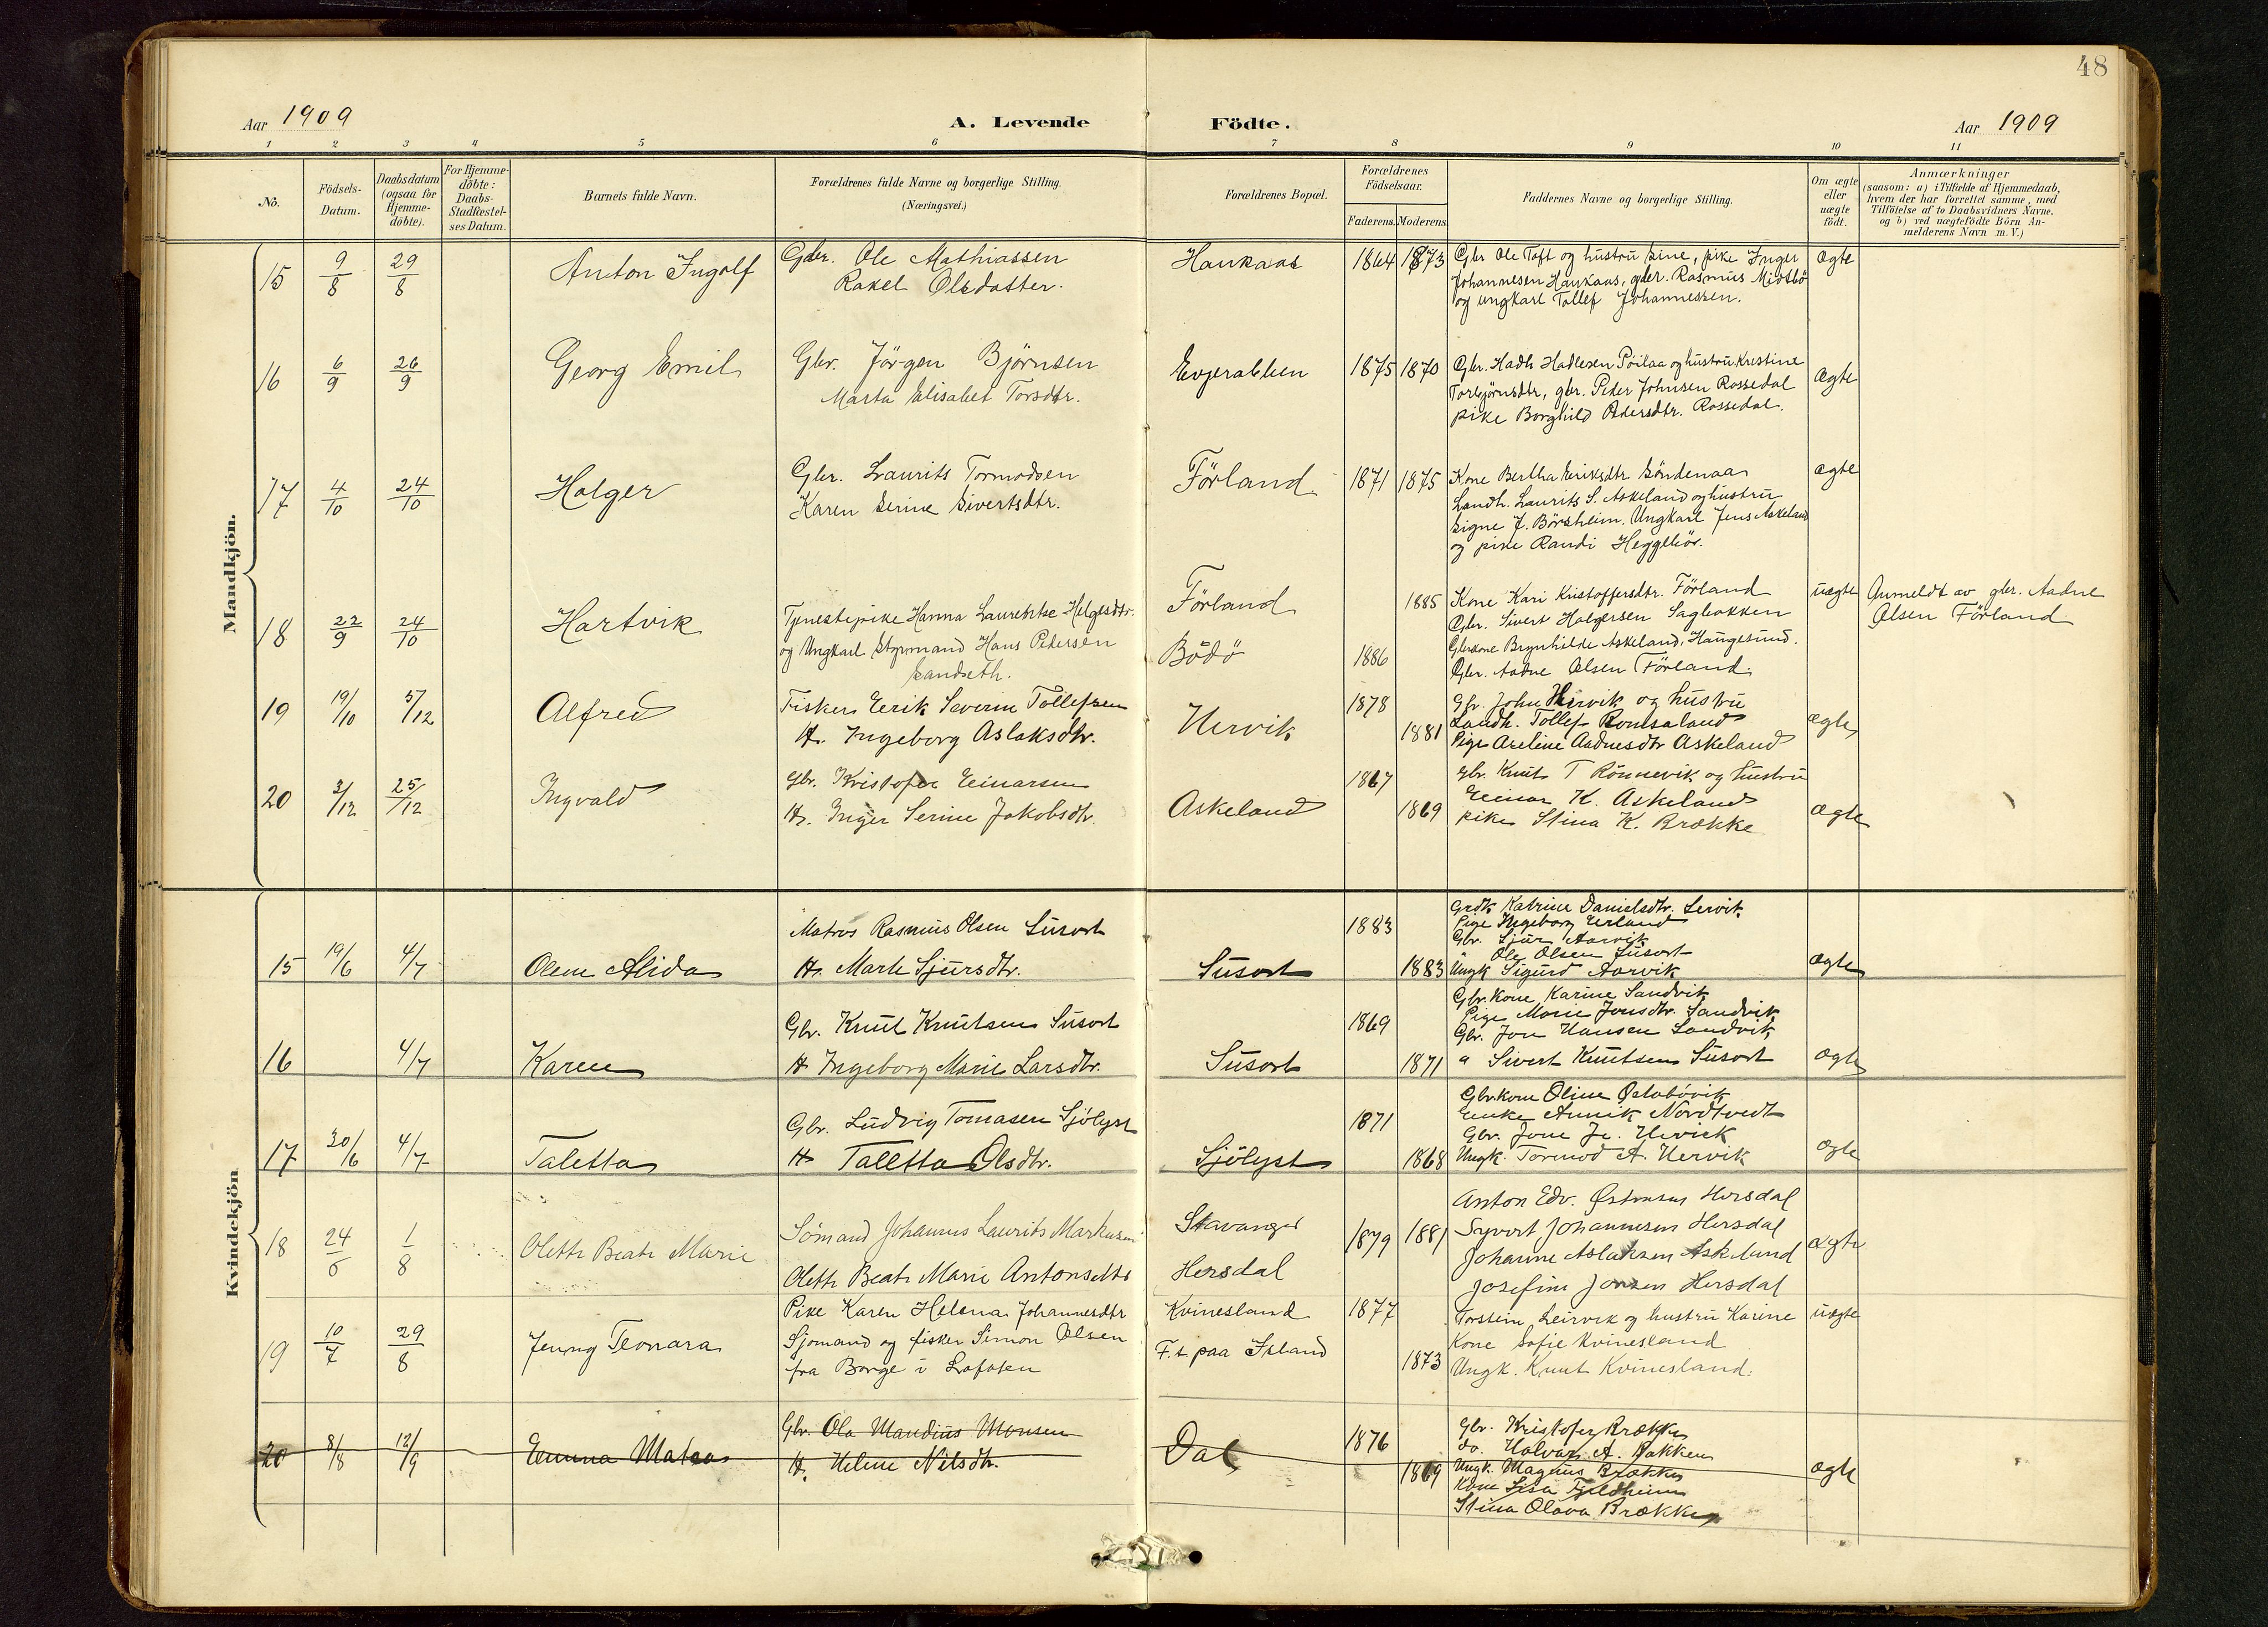 48
Aar 1909
A. Levende Födte.
Aar 1909
1 2 3 4 5 6 7 8 9 10 11
No.
Födsels-Datum.
Daabsdatum (ogsaa for Hjemme-döbte).
For Hjemme-döbte: Daabs-Stadfestel-ses Datum.
Barnets fulde Navn.
Forældrenes fulde Navne og borgerlige Stilling.
(Næringsvei.)
Forældrenes Bopæl.
Forældrenes Födselsaar.
Faderens. Moderens.
Faddernes Navne og borgerlige Stilling.
Om ægte eller uægte födt.
Anmærkninger
(saasom: a) i Tilfælde af Hjemmedaab,
hvem der har forrettet samme, med
Tilföielse af to Daabsvidners Navne.
og b) ved uægtefödte Börn An-
melderens Navn m. V.)
Mandkjön.
15 9/8 29/8 Anton Ingolf
Gbr. Ole Mathiassen
Rakel Olsdatter.
Haukaas 1864 1873
Gbr Ole Toft og hustru Sine, pike Inger
Johannesen Haukaas, gbr. Rasmus Midtbö
og ungkarl Tollef Johannessen.
ægte
16 6/9 26/9 Georg Emil
Gbr. Jörgen Björnsen
Marta Elisabet Torsdtr.
1875 1870
Gbr. Hadle Hadlesen Pöilaa og hustru Kristine
Torbjörnsdtr, gbr. Peder Johnsen Rossedal
pike Borghild Pedersdtr. Rossedal.
ægte
17 4/10 24/10 Holger
Gbr. Laurits Tormodsen
Karen Serine Sivertsdtr.
Förland 1871 1875
Kone Bertha Eriksdtr. Söndenaa
Landh. Laurits S. Askeland og hustru
Signe J. Börsheim. Ungkarl Jens Askeland
og pike Randi Heggebö.
ægte
18 22/9 24/10 Hartvik
Tjenestepike Hanna Laurentse Helgesdtr.
og Ungkarl Styrmand Hans Pedersen
Sandseth.
Förland
Bödö
1886 1885
Kone Kari Kristoffersdtr. Förland
Gbr. Sivert Holgersen Sagbakken
Gbrkone Brynhilde Askeland, Haugesund.
Gbr. Aadne Olsen Förland.
uægte
Anmeldt av gbr. Aadne
Olsen Förland
19 19/10 5/12 Alfred
Fisker Eerik Severin Tollefsen
H. Ingeborg Aslaksdtr.
Hervik 1878 1881
Gbr. John Hervik og hustru
Landh. Tollef Romsaland
Pige Aseline Aadnesdtr Askeland
ægte
20 3/12 25/12 Ingvald
Gbr. Kristofer Einarsen
H. Inger Serine Jakobsdtr.
Askeland 1867 1869
Gbr. Knut T Rönnevik og hustru
Einar K. Askeland
pike Stina K. Brække
ægte
Kvindekjön
15 19/6 4/7 Olene Alida
Matros Rasmus Olsen Susort
H. Marte Sjursdtr.
Susort 1883 1883
Katrine Danielsdtr. Lervik
Pige Ingeborg Erland
Gbr. Sjur Aarvik
" Ole Olsen Susort
Ungk Sigurd Aarvik
ægte
16 4/7 Karen
Gbr. Knut Knutsen Susort
H Ingeborg Marie Larsdtr.
Susort 1869 1871
Gbr. Kone Karine Sandvik
Pige Marie Jonsdtr. Sandvik
Gbr. Jon Hansen Sandvik
" Sivert Knutsen Susort
ægte
17 30/6 4/7 Taletta
Gbr. Ludvig Tomasen Sjölyst
H Taletta Olsdtr.
Sjölyst 1871 1868
Gbrkone Oline Östabövik
Enke Annik Nordtvedt
Gbr. Jone Jr. Hervick
Ungk. Tormod A. Hervik
ægte
18 24/6 1/8 Olette Beate Marie
Sömand Johannes Laurits Markusen
Olette Beate Marie Antonsdtr
Stavanger
Hersdal
1879 1881
Anton Edv. Östensen Hersdal
Syvert Johannesen Hersdal
Johanne Aslaksen Askelund
Josefine Jonsen Hersdal
ægte
19 10/7 29/8 Jenny Teonara
Pike Karen Helena Johannesdtr
Sjömand og fisker Simon Olsen
fra Borge i Lofoten
Kvinesland
F.t paa Island
1877 1873
Torstein Leirvik og hustru Karine
Kone Sofie Kvinesland
Ungk. Knut Kvinesland.
uægte
20 8/8 12/9 Emma Matea
Gbr. Ola Mandius Monsen
H. Helene Nilsdtr.
Dal 1876 1869
Gbr. Kristofer Brække
do. Halvar A. Bakken
Ungk. Magnus Brække
Kone Lisa Fjeldheim
Stina Olava Brække
ægte